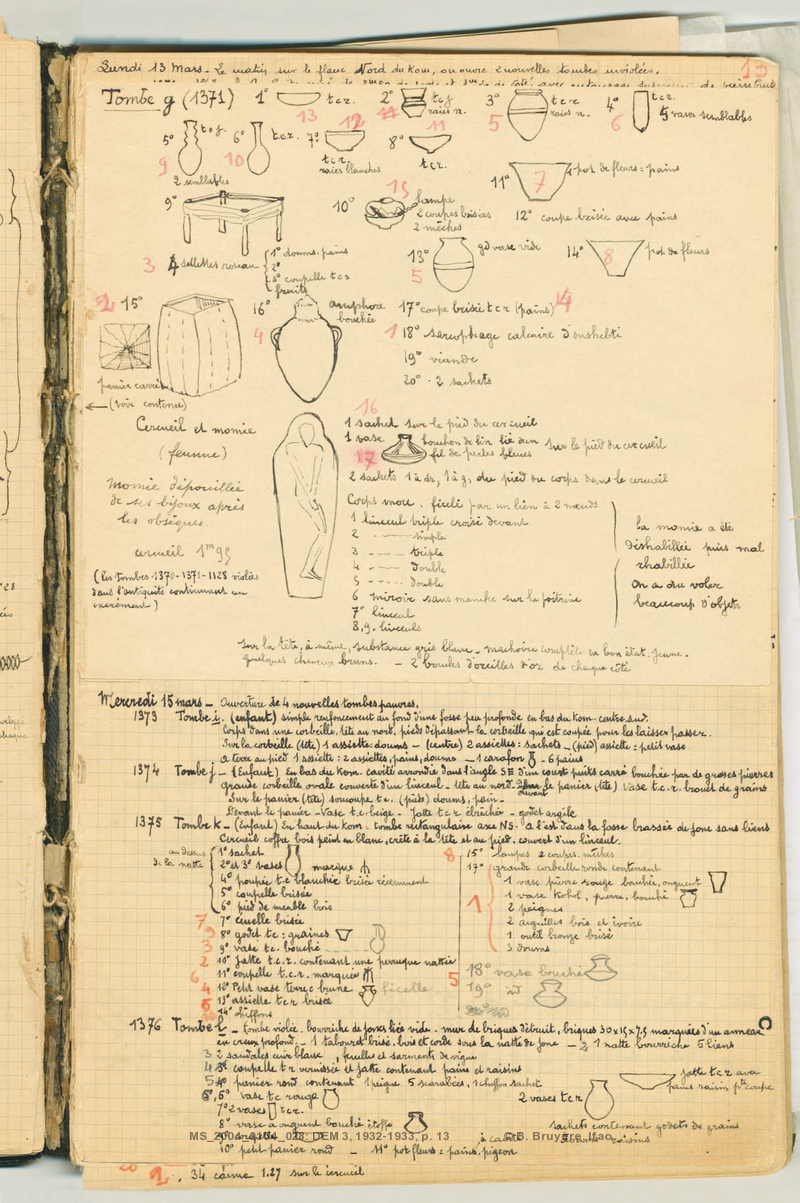 Lundi 13 Mars - Le matin sur le flanc Nord du Kom, on ouvre 2 nouvelles tombes inviolées.
13
Tombe g (1371) 1° t c r. 2° t c j raies n. 3° t c r raies n. 4° t c r. 5 vases semblables
13 5 6
5° t c j 2 semblables 6° t c r. 7° t c r. raies blanches 8° t c r.
9 10 12 11
9° 10° lampe 2 coupes brisées 2 mèches 11° 4 pot de fleurs : pains
15 7
12° coupe brisée avec pains
3 4 sellettes roseau 1° doums. pains
2°
3° coupelle t c r
fruits
13° gd vase vide 14° pot de fleurs
5 8
2 15° 16° amphore bouchée 17° coupe brisée t c r (pains) 14
4 1 18° sarcophage calcaire d'oushebti
19° viande
20° . 2 sachets
panier carré
(voir contenu)
16
Cercueil et momie
(femme)
1 sachet sur le pied du cercueil
1 vase bouchon de lin lié d'un fil de perles bleues sur le pied du cercueil
17
2 sachets 1 à dr, 1 à g, du pied du corps dans le cercueil
momie dépouillée
de ses bijoux après
les obsèques
cercueil 1m95
(les tombes 1370-1371-1128 violées
dans l'antiquité
Corps mou. ficelé par un lien à 2 nœuds
1 linceul triple croisé devant
2 ---- simple
3 ---- triple
4 ---- double
5 ---- double
6 miroir sans manche sur la poitrine
7° linceul
8, 9. linceuls
la momie a été
déshabillée puis mal
rhabillée
on a du voler
beaucoup d'objets
sur la tête, à même, substance gris blanc - machoire complète en bon état. jeune.
quelques cheveux bruns. - 2 boucles d'oreilles d'or de chaque côté
Mercredi 15 mars - Ouverture de 4 nouvelles tombes pauvres.
1373 Tombe i. (enfant) simple renfoncement au fond d'une fosse peu profonde en bas du Kom. centre. sud.
Corps dans une corbeille, tête au nord, pieds dépassant la corbeille qui est coupée pour les laisser passer.
Sur la corbeille (tête) 1 assiette : doums - (centre) 2 assiettes : sachets - (pied) assiette : petit vase
à terre au pied 1 assiette : 2 assiettes, pains, doums - 1 carafon - 6 pains
1374 Tombe j - (Enfant) En bas du Kom. cavité arrondie dans l'angle SE d'un court puits carré bouchée par de grosses pierres
grande corbeille ovale couverte d'un linceul - tête au nord. devant le panier (tête) vase t.c.r. brouet de grains
Sur le panier (tête) soucoupe t.c. (pieds) doums, pain -
Devant le panier - Vase t.c. beige - Jatte t c r ébréchée - godet argile
1375 Tombe k - (Enfant) En haut du Kom. tombe rectangulaire axe NS. à l'est dans la fosse brassée de jonc sans liens
Cercueil coffre bois peint en blanc, crête à la tête et au pied. couvert d'un linceul.
au dessus
de la natte
1° sachet
2° et 3° vases marque
4° poupée t c blanchie brisée récemment
5° coupelle brisée
6° pied de meuble bois
7 7° écuelle brisée
8° godet t c : graines
3 9° vase t c. bouché
2 10° Jatte t.c.r. contenant une perruque nattée
6 11° coupelle t.c.r. marquée
4 12° Petit vase terre c brune ficelle
5 13° assiette t c r brisée
14° chiffons
8 15° lampes 2 coupes. mèches
17° grande corbeille ronde contenant
1 1 vase pierre rouge bouchée, onguent
1 vase Kohol, pierre, bouché
2 peignes
2 aiguilles bois et ivoire
1 outil bronze brisé
3 doums
18° vase bouché
5 19° id
1376 Tombe l - tombe violée. bourriche de joncs liée vide - mur de briques détruit, briques 30x15x7,5 marquées d'un anneau
en creux profond. - 1 tabouret brisé, bois et corde sous la natte de jonc - 1 natte bourriche 5 liens
3 2 sandales cuir blanc, feuilles et sarments de vigne
4 3° coupelle t c r vernissée et jatte contenant pains et raisins
5 4° panier rond contenant 1 peigne 5 scarabées, 1 chiffon sachet
5°, 6° vase t c rouge
7° 2 vases t c r.
8° vase à onguent bouché étoffe
10° petit panier rond - 11° pot fleurs : pains. pigeon
2 vases t c r
jatte t c r avec
pains raisin pte coupe
sachets contenant godets de grains
raisins
MS_2004_0154_028: DEM 3, 1932-1933, p. 13 © B. Bruyère, Ifao
34 canne 1.27 sur le cercueil